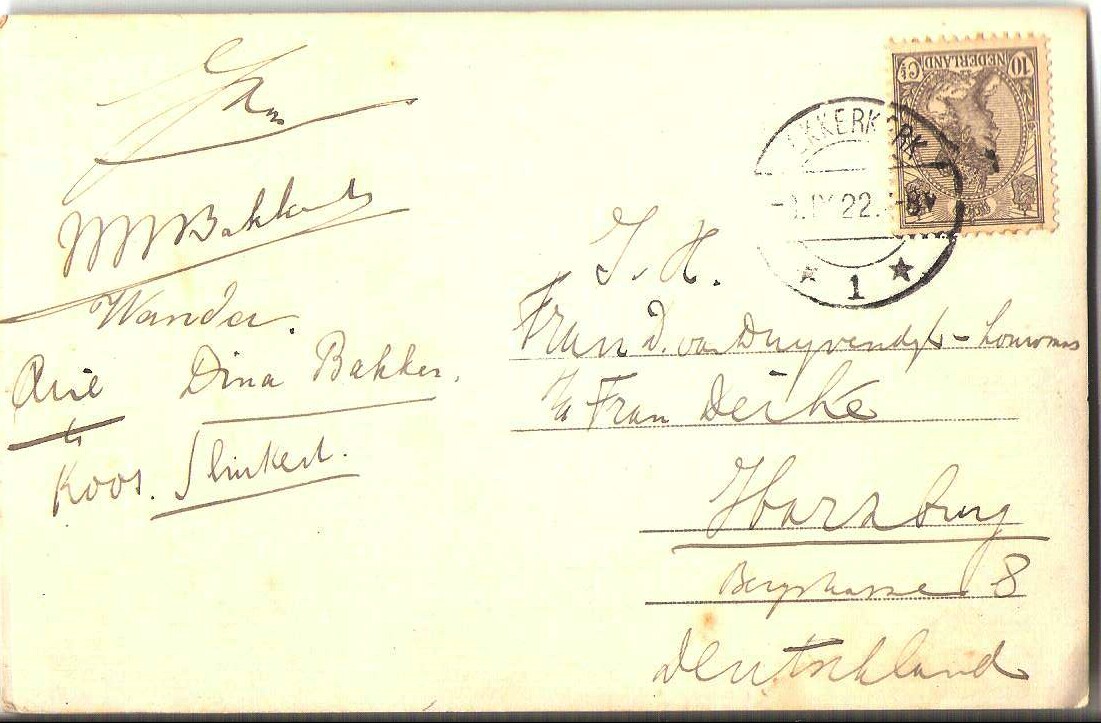 Bakker
Wanda.
Rie Dina Bakker.
Koos. Slinkert.
10 NEDERLAND Ct
KKERKERK
IX 22. 8V
1
J. H.
Frau D. van Duyvendijk - Louwman
p/a Frau Deike
Harzburg
Bergstrasse 8
Deutschland